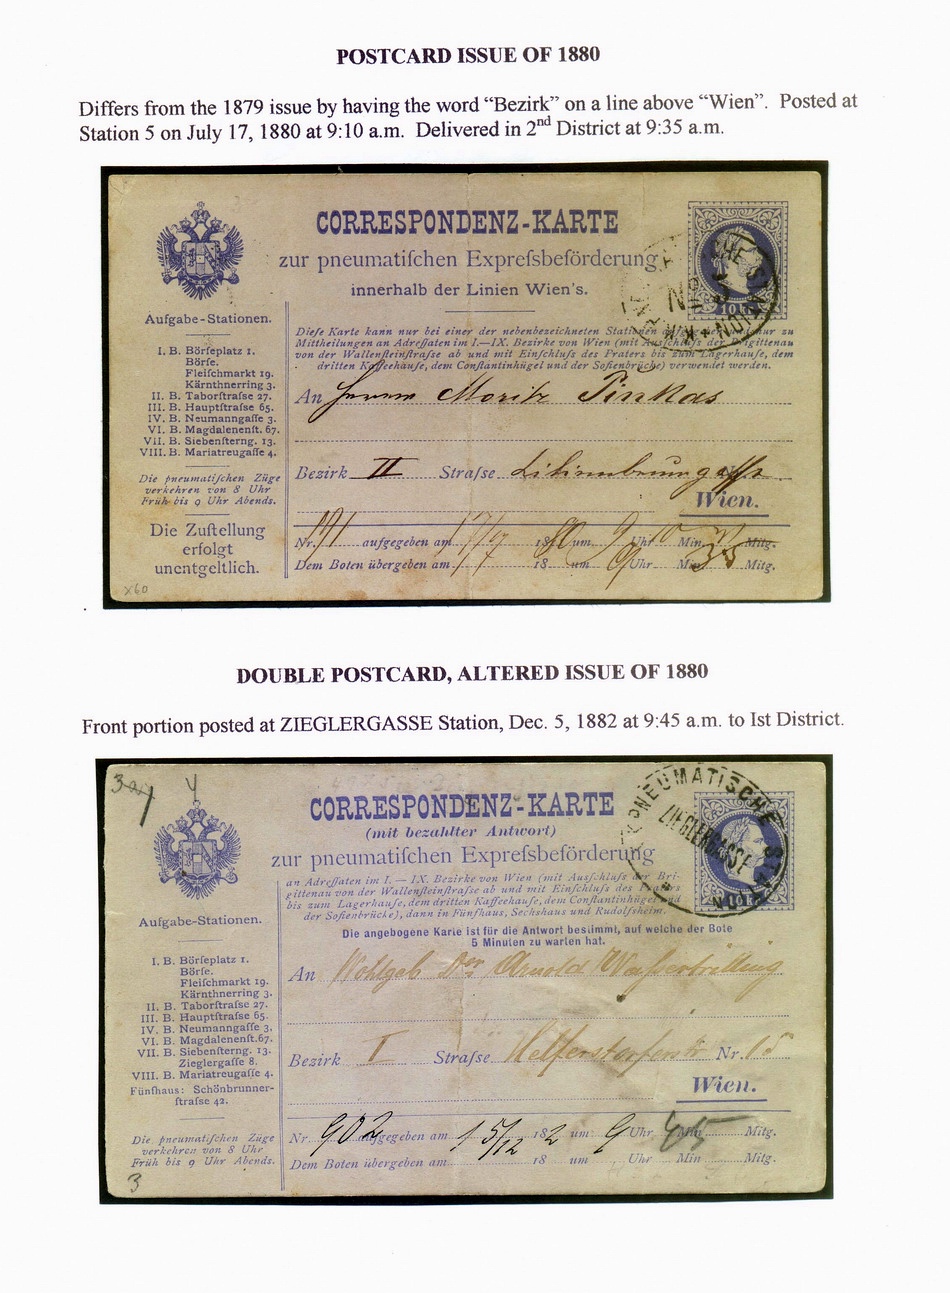 POSTCARD ISSUE OF 1880
Differs from the 1879 issue by having the word “Bezirk” on a line above “Wien”. Posted at
Station 5 on July 17, 1880 at 9:10 a.m. Delivered in 2nd District at 9:35 a.m.
CORRESPONDENZ-KARTE
zur pneumatiſchen Expreſsbeförderung
innerhalb der Linien Wien's.
Aufgabe-Stationen.
I. B. Börſeplatz 1.
Börſe.
Fleiſchmarkt 19.
Kärnthnerring 3.
II. B. Taborſtraſse 27.
III. B. Hauptſtraſse 65.
IV. B. Neumanngaſſe 3.
VI. B. Magdalenenſt. 67.
VII. B. Siebenſterng. 13.
VIII. B. Mariatreugaſſe 4.
Die pneumatiſchen Züge
verkehren von 8 Uhr
Früh bis 9 Uhr Abends.
Die Zuſtellung
erfolgt
unentgeltlich.
x60
Dieſe Karte kann nur bei einer der nebenbezeichneten Stationen nur zu
Mittheilungen an Adreſſaten im I.—IX. Bezirke von Wien (mit Ausſchluſs der Brigittenau
von der Wallenſteinſtraſse ab und mit Einſchluſs des Praters bis zum Lagerhauſe, dem
dritten Kaffeehauſe, dem Conſtantinhügel und der Sofienbrücke) verwendet werden.
An Herrn Moritz Pinkas
Bezirk II Straſse
Wien.
Nr. 191 aufgegeben am 17/7 1880 um 9 Uhr 10 Min. Mitg.
Dem Boten übergeben am 18 um 9 Uhr 35 Min. Mitg.
10 kr
DOUBLE POSTCARD, ALTERED ISSUE OF 1880
Front portion posted at ZIEGLERGASSE Station, Dec. 5, 1882 at 9:45 a.m. to Ist District.
CORRESPONDENZ-KARTE
(mit bezahlter Antwort)
zur pneumatiſchen Expreſsbeförderung
PNEUMATISCHE
ZIEGLERGASSE
10 kr
an Adreſſaten im I. — IX. Bezirke von Wien (mit Ausſchluſs der Bri-
gittenau von der Wallenſteinſtraſse ab und mit Einſchluſs des Praters
bis zum Lagerhauſe, dem dritten Kaffeehauſe, dem Conſtantinhügel und
der Sofienbrücke), dann in Fünfhaus, Sechshaus und Rudolfsheim.
Die angebogene Karte ist für die Antwort bestimmt, auf welche der Bote
5 Minuten zu warten hat.
Aufgabe-Stationen.
I. B. Börſeplatz 1.
Börſe.
Fleiſchmarkt 19.
Kärnthnerring 3.
II. B. Taborſtraſse 27.
III. B. Hauptſtraſse 65.
IV. B. Neumanngaſſe 3.
VI. B. Magdalenenſt. 67.
VII. B. Siebenſterng. 13.
Zieglergaſſe 8.
VIII. B. Mariatreugaſſe 4.
Fünfhaus: Schönbrunner-
ſtraſse 42.
Die pneumatiſchen Züge
verkehren von 8 Uhr
Früh bis 9 Uhr Abends.
3
An Wohlgeb Arnold
Bezirk I Straſse Helferstorferstr Nr. 15
Wien.
Nr. 902 aufgegeben am 15/12 1882 um 9 Uhr 45 Min Mitg.
Dem Boten übergeben am 18 um Uhr Min Mitg.